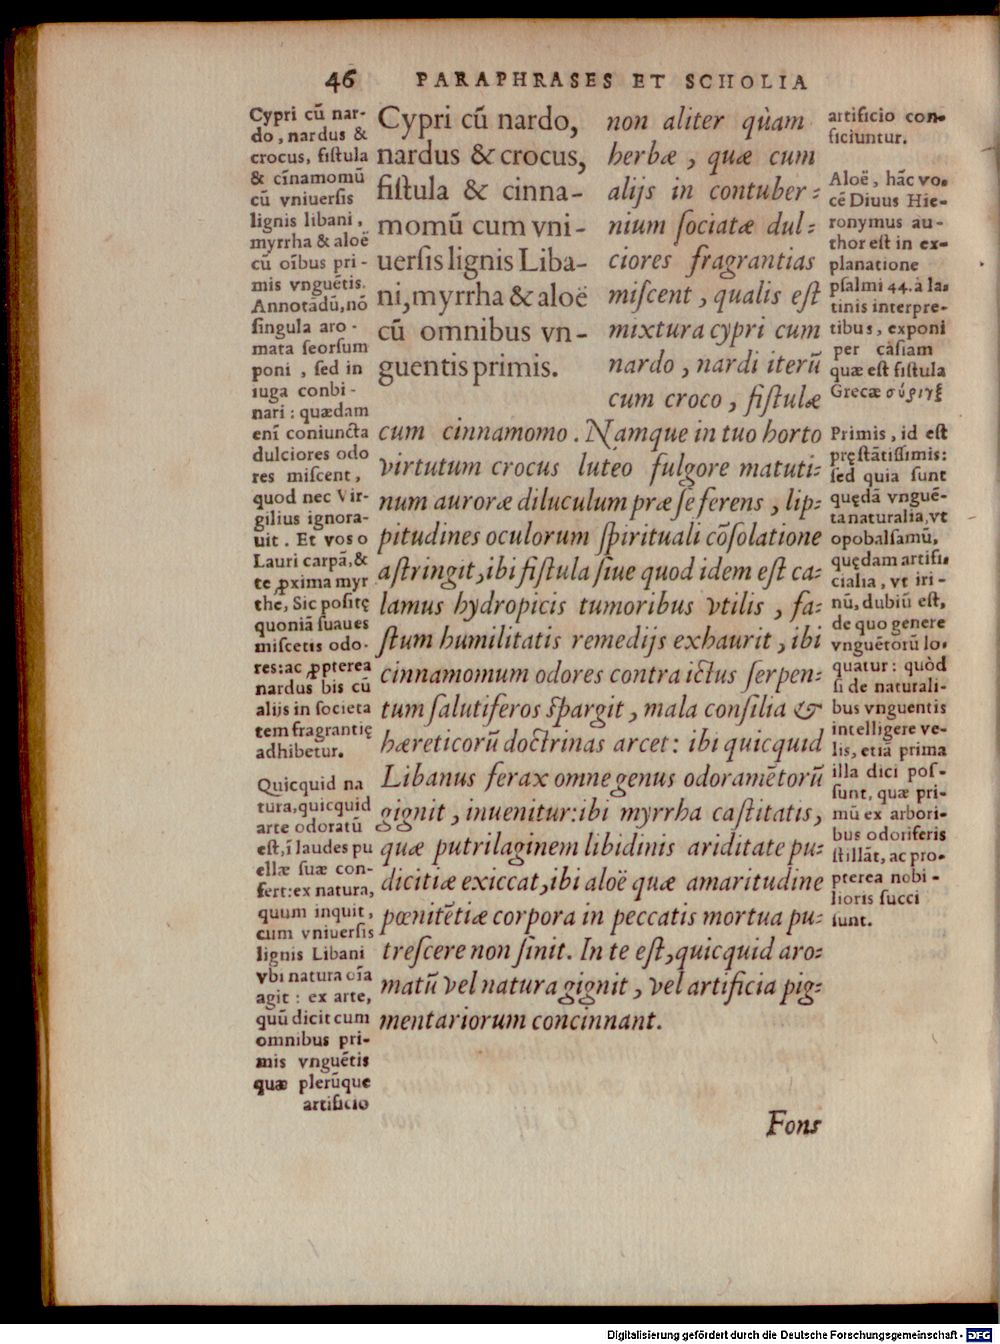 46 PARAPHRASES ET SCHOLIA
Cypri cũ nar-
do, nardus &
crocus, fiſtula
& cĩnamomũ
cũ vniuerſis
lignis libani,
myrrha & aloë
cũ oĩbus pri-
mis vnguẽtis.
Annotãdũ, nõ
ſingula aro-
mata ſeorſum
poni, ſed in
iuga conbi-
nari: quædam
enĩ coniuncta
dulciores odo
res miſcent,
quod nec Vir-
gilius ignora-
uit. Et vos o
Lauri carpã, &
te ꝓxima myr
the, Sic poſitę
quoniã ſuaues
miſcetis odo-
res: ac ꝓpterea
nardus bis cũ
alijs in ſocieta
tem fragrantię
adhibetur.
Quicquid na
tura, quicquid
arte odoratũ
eſt, ĩ laudes pu
ellæ ſuæ con-
fert: ex natura,
quum inquit,
cum vniuerſis
lignis Libani
vbi natura oĩa
agit: ex arte,
quũ dicit cum
omnibus pri-
mis vnguẽtis
quæ plerũque
artificio
Cypri cũ nardo,
nardus & crocus,
fiſtula & cinna-
momũ cum vni-
uerſis lignis Liba-
ni, myrrha & aloë
cũ omnibus vn-
guentis primis.
non aliter quàm
herbæ, quæ cum
alijs in contuber-
nium ſociatæ dul-
ciores fragrantias
miſcent, qualis eſt
mixtura cypri cum
nardo, nardi iterũ
cum croco, fiſtulæ
cum cinnamomo. Namque in tuo horto
virtutum crocus luteo fulgore matuti-
num auroræ diluculum præ ſe ferens, lip-
pitudines oculorum ſpirituali cõſolatione
aſtringit, ibi fiſtula ſiue quod idem eſt ca-
lamus hydropicis tumoribus vtilis, fa-
ſtum humilitatis remedijs exhaurit, ibi
cinnamomum odores contra ictus ſerpen-
tum ſalutiferos ſpargit, mala conſilia &
hæreticorũ doctrinas arcet: ibi quicquid
Libanus ferax omne genus odoramẽtorũ
gignit, inuenitur: ibi myrrha caſtitatis,
quæ putrilaginem libidinis ariditate pu-
dicitiæ exiccat, ibi aloë quæ amaritudine
pœnitẽtiæ corpora in peccatis mortua pu-
treſcere non ſinit. In te eſt, quicquid aro-
matũ vel natura gignit, vel artificia pig-
mentariorum concinnant.
artificio con-
ficiuntur.
Aloë, hãc vo-
cẽ Diuus Hie-
ronymus au-
thor eſt in ex-
planatione
pſalmi 44. à la-
tinis interpre-
tibus, exponi
per caſiam
quæ eſt fiſtula
Grecæ σύριγξ
Primis, id eſt
pręſtãtiſſimis:
ſed quia ſunt
quędã vnguẽ-
ta naturalia, vt
opobalſamũ,
quędam artifi-
cialia, vt iri-
nũ, dubiũ eſt,
de quo genere
vnguẽtorũ lo-
quatur: quòd
ſi de naturali-
bus vnguentis
intelligere ve-
lis, etiã prima
illa dici poſ-
ſunt, quæ pri-
mũ ex arbori-
bus odoriferis
ſtillãt, ac pro-
pterea nobi-
lioris ſucci
ſunt.
Fons
Digitalisierung gefördert durch die Deutsche Forschungsgemeinschaft - DFG